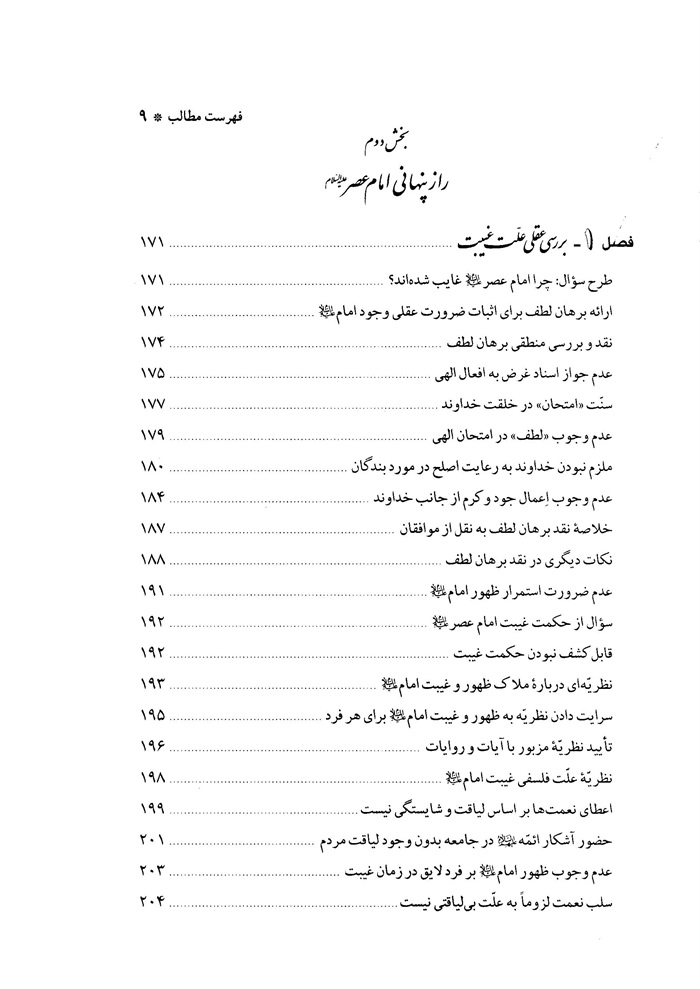 فهرست مطالب * ۹
بخش دوم
راز پنهانی امام عصر علیه‌السلام
فصل ۱ - بررسی عقلی علّت غیبت ۱۷۱
طرح سؤال: چرا امام عصر علیه‌السلام غایب شده‌اند؟ ۱۷۱
ارائه برهان لطف برای اثبات ضرورت عقلی وجود امام علیه‌السلام ۱۷۲
نقد و بررسی منطقی برهان لطف ۱۷۴
عدم جواز اسناد غرض به افعال الهی ۱۷۵
سنّت «امتحان» در خلقت خداوند ۱۷۷
عدم وجوب «لطف» در امتحان الهی ۱۷۹
ملزم نبودن خداوند به رعایت اصلح در مورد بندگان ۱۸۰
عدم وجوب اِعمال جود و کرم از جانب خداوند ۱۸۴
خلاصهٔ نقد برهان لطف به نقل از موافقان ۱۸۷
نکات دیگری در نقد برهان لطف ۱۸۸
عدم ضرورت استمرار ظهور امام علیه‌السلام ۱۹۱
سؤال از حکمت غیبت امام عصر علیه‌السلام ۱۹۲
قابل کشف نبودن حکمت غیبت ۱۹۲
نظریّه‌ای دربارهٔ ملاک ظهور و غیبت امام علیه‌السلام ۱۹۳
سرایت دادن نظریّه به ظهور و غیبت امام علیه‌السلام برای هر فرد ۱۹۵
تأیید نظریّهٔ مزبور با آیات و روایات ۱۹۶
نظریّهٔ علّت فلسفی غیبت امام علیه‌السلام ۱۹۸
اعطای نعمت‌ها بر اساس لیاقت و شایستگی نیست ۱۹۹
حضور آشکار ائمّه علیهم‌السلام در جامعه بدون وجود لیاقت مردم ۲۰۱
عدم وجوب ظهور امام علیه‌السلام بر فرد لایق در زمان غیبت ۲۰۳
سلب نعمت لزوماً به علّت بی‌لیاقتی نیست ۲۰۴